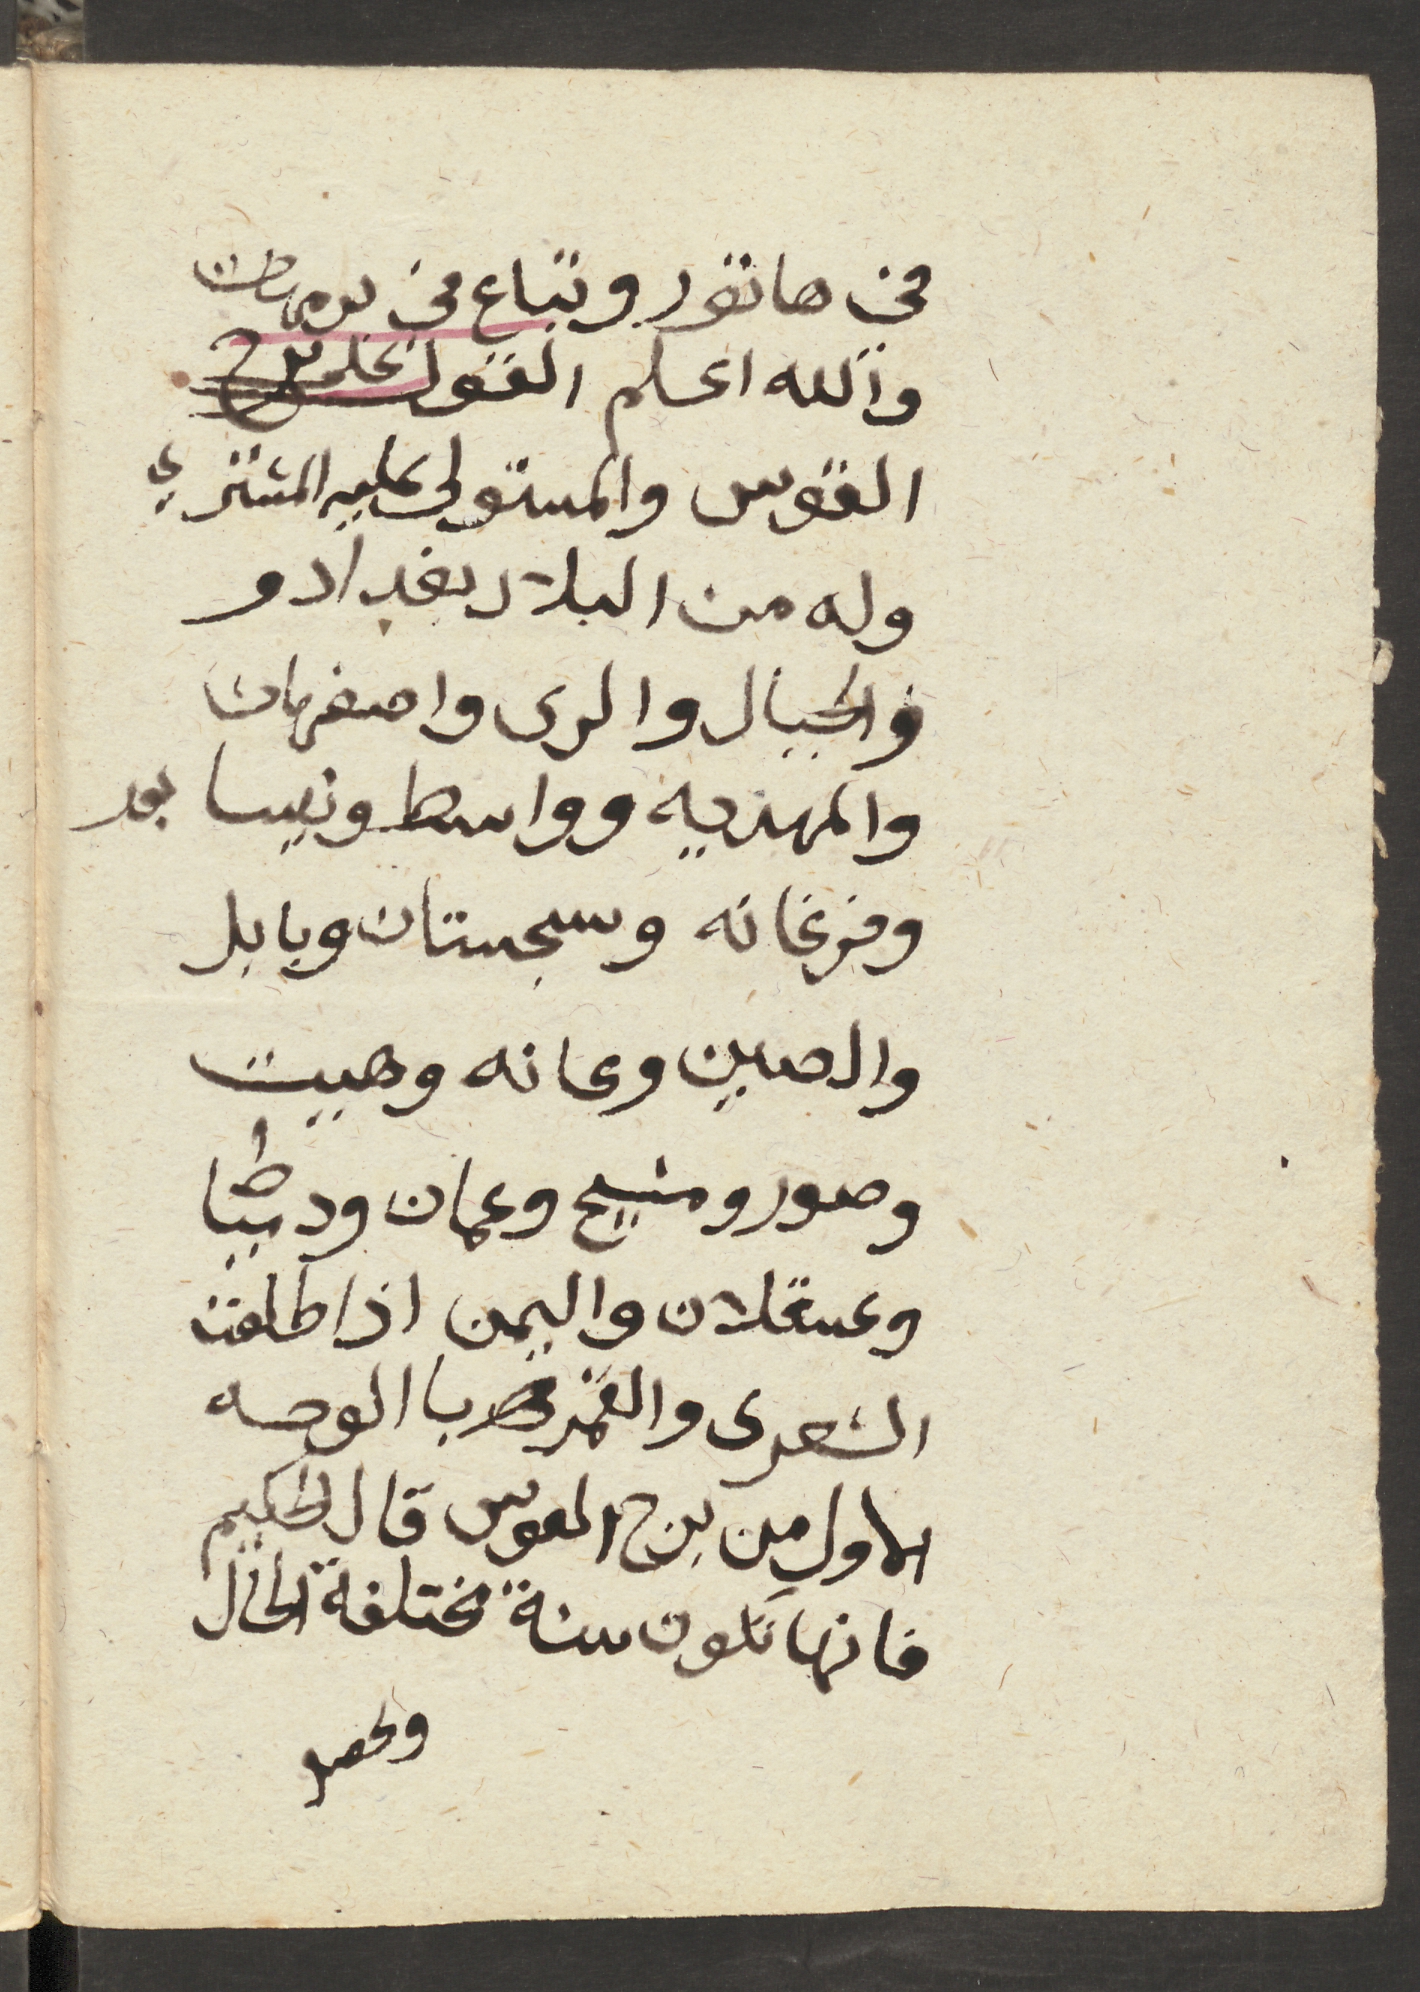 في هاتور وتباع في برمهات
والله اعلم القول علي برج
القوس والمستولي عليه المشتري
وله من البلاد بغداد و
والجبال والرى واصفهان
والمهديه وواسط ونيسا بور
وفرغانه وسجستان وبابل
والصين وعانه وهيت
وصور ومنبج وعمان ودبيبا
وعسقلان واليمن اذا طلعت
الشعرى والقمر با الوجه
الاول من برج القوس قال الحكيم
فانها تكون سنة مختلفة الحال